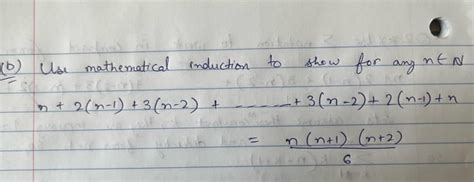 (b) Use mathematical induction to show for any n ∈ N
n + 2(n-1) + 3(n-2) + ------- + 3(n-2) + 2(n-1) + n
= n(n+1).(n+2)
6